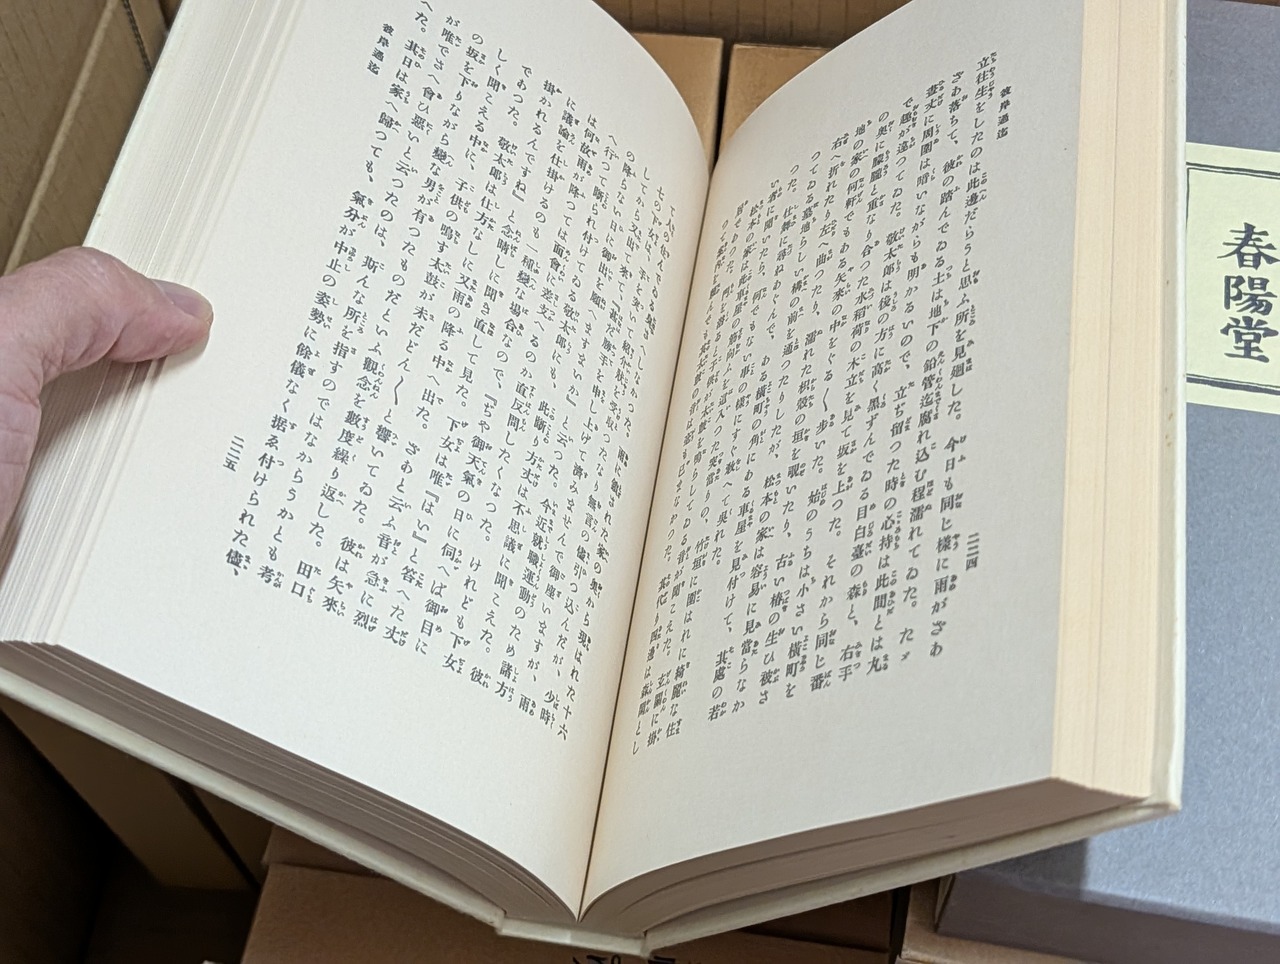 彼岸過迄
二二四
立往生をしたのは此邊だらうと思ふ所を見廻した。今日も同じ様に雨がざあ
ざあ落ちて、彼の踏んでゐる土は地下の鉛管迄腐れ込む程濡れてゐた。たゞ
晝丈に周圍は暗いながらも明かるいので、立ち留つた時の心持は此間とは丸
で趣が違つてゐた。敬太郎は後の方に高く黒ずんでゐる目白臺の森と、右手
の奥に朦朧と重なり合つた水稻荷の木立を見て坂を上つた。それから同じ番
地の家の何軒でもある矢來の中をぐる〱歩いた。始のうちは小さい横町を
右へ折れたり左へ曲つたり、濡れた枳殻の垣を覗いたり、古い椿の生ひ被さ
つてゐる墓地らしい構の前を通つたりしたが、松本の家は容易に見當らなか
つた。仕舞に尋ねあぐんで、ある横町の角にある車屋を見付けて、其處の若
い者に聞いたら、何でもない事の様にすぐ教へて呉れた。
松本の家は此車屋の筋向ふを這入つた突當りの、竹垣に圍はれた綺麗な住
居であつた。門を潜ると子供が太鼓を鳴らしてゐる音が聞こえた。玄關に掛
て人のゐるんでゐる氣
七の下女が、手を突いて紹介状を受取つたなり無言の儘引つ込んだが、少時
してから又出て來て「甚だ勝手を申し上げて濟みませんで御座いますが、雨
の降らない日に御出を願へますまいか」と云つた。今迄就職運動のため諸方
へ行つて斷られ付けてゐる敬太郎にも、此斷り方丈は不思議に聞こえた。彼
は何故雨が降つては面會に差支へるのか直反問したくなつた。けれども下女
に議論を仕掛けるのも一種變な場合なので、「ぢや御天氣の日に伺へば御目に
掛かれるんですね」と念晴しに聞き直して見た。下女は唯『はい』と答へた丈
であつた。敬太郎は仕方なしに又雨の降る中へ出た。ざあと云ふ音が急に烈
しく聞こえる中に、子供の鳴す太鼓が未だどん〱と響いてゐた。彼は矢來
の坂を下りながら變な男が有つたものだといふ觀念を數度繰り返した。田口
が唯でさへ會ひ惡いと云つたのは、斯んな所を指すのではなからうかとも考
へた。其日は家へ歸つても、氣分が中止の姿勢に餘儀なく据ゑ付けられた儘、
彼岸過迄
二二五
春陽堂